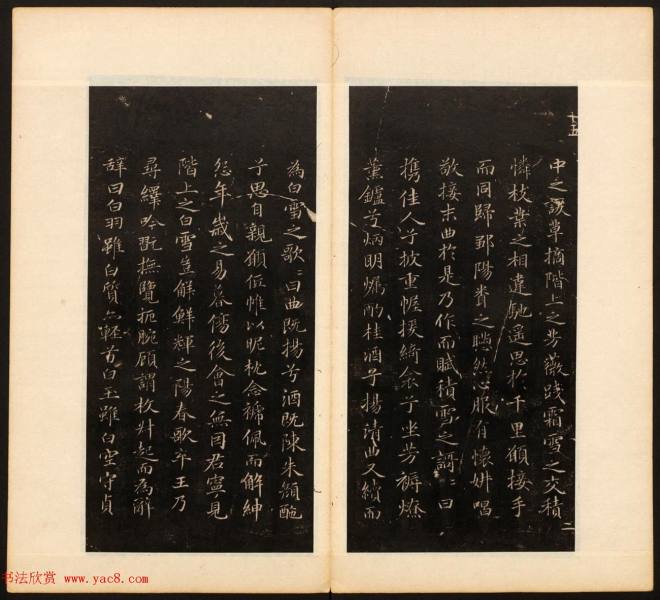 十五
中之萱草摘階上之芳薇踐霜雪之交積
憐枝葉之相違馳遙思於千里願接手
而同歸鄒陽聞之懣然心服有懷妍唱
敬接末曲於是乃作而賦積雪之謌〻曰
攜佳人兮披重幄援綺衾兮坐芳褥燎
薰鑪兮炳明燭酌桂酒兮揚清曲又續而
二
為白雪之歌〻曰曲既揚兮酒既陳朱顏酡
兮思自親願低帷以昵枕念褫佩而解紳
怨年歲之易暮傷後會之無因君寧見
階上之白雪豈解鮮輝之陽春歌卒王乃
尋繹吟翫撫覽扼腕顧謂枚叔起而為亂
辭曰白羽雖白質以輕兮白玉雖白空守貞
书法欣赏 www.yac8.com